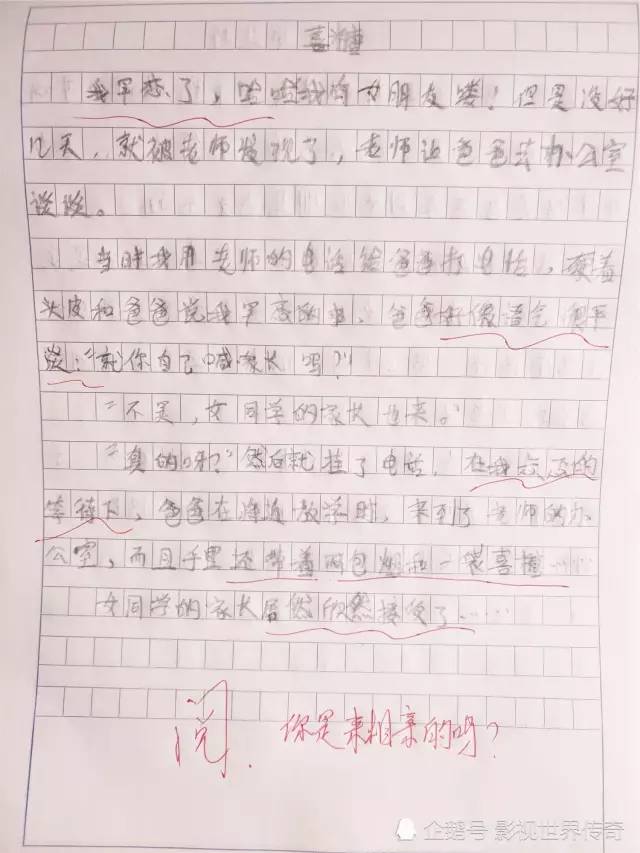 喜糖
我早恋了，哈哈我有女朋友喽！但是没好
几天，就被老师发现了，老师让爸爸去办公室
谈谈。
当时我用老师的电话给爸爸打电话，硬着
头皮和爸爸说我早恋的事，爸爸好像语气很平
淡："就你自己喊家长吗？"
"不是，女同学的家长也来。"
"真的呀？"然后就挂了电话，在我忐忑的
等待下，爸爸在接近放学时，来到了老师的办
公室，而且手里还带着两包烟和一袋喜糖……
女同学的家长居然欣然接受了……
阅. 你是来相亲的吗？
企鹅号 影视世界传奇